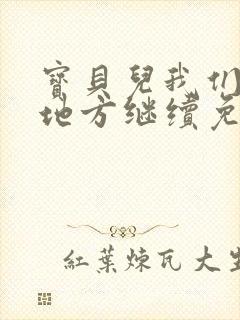 寶貝兒我们
地方继续免
紅葉煉瓦大生